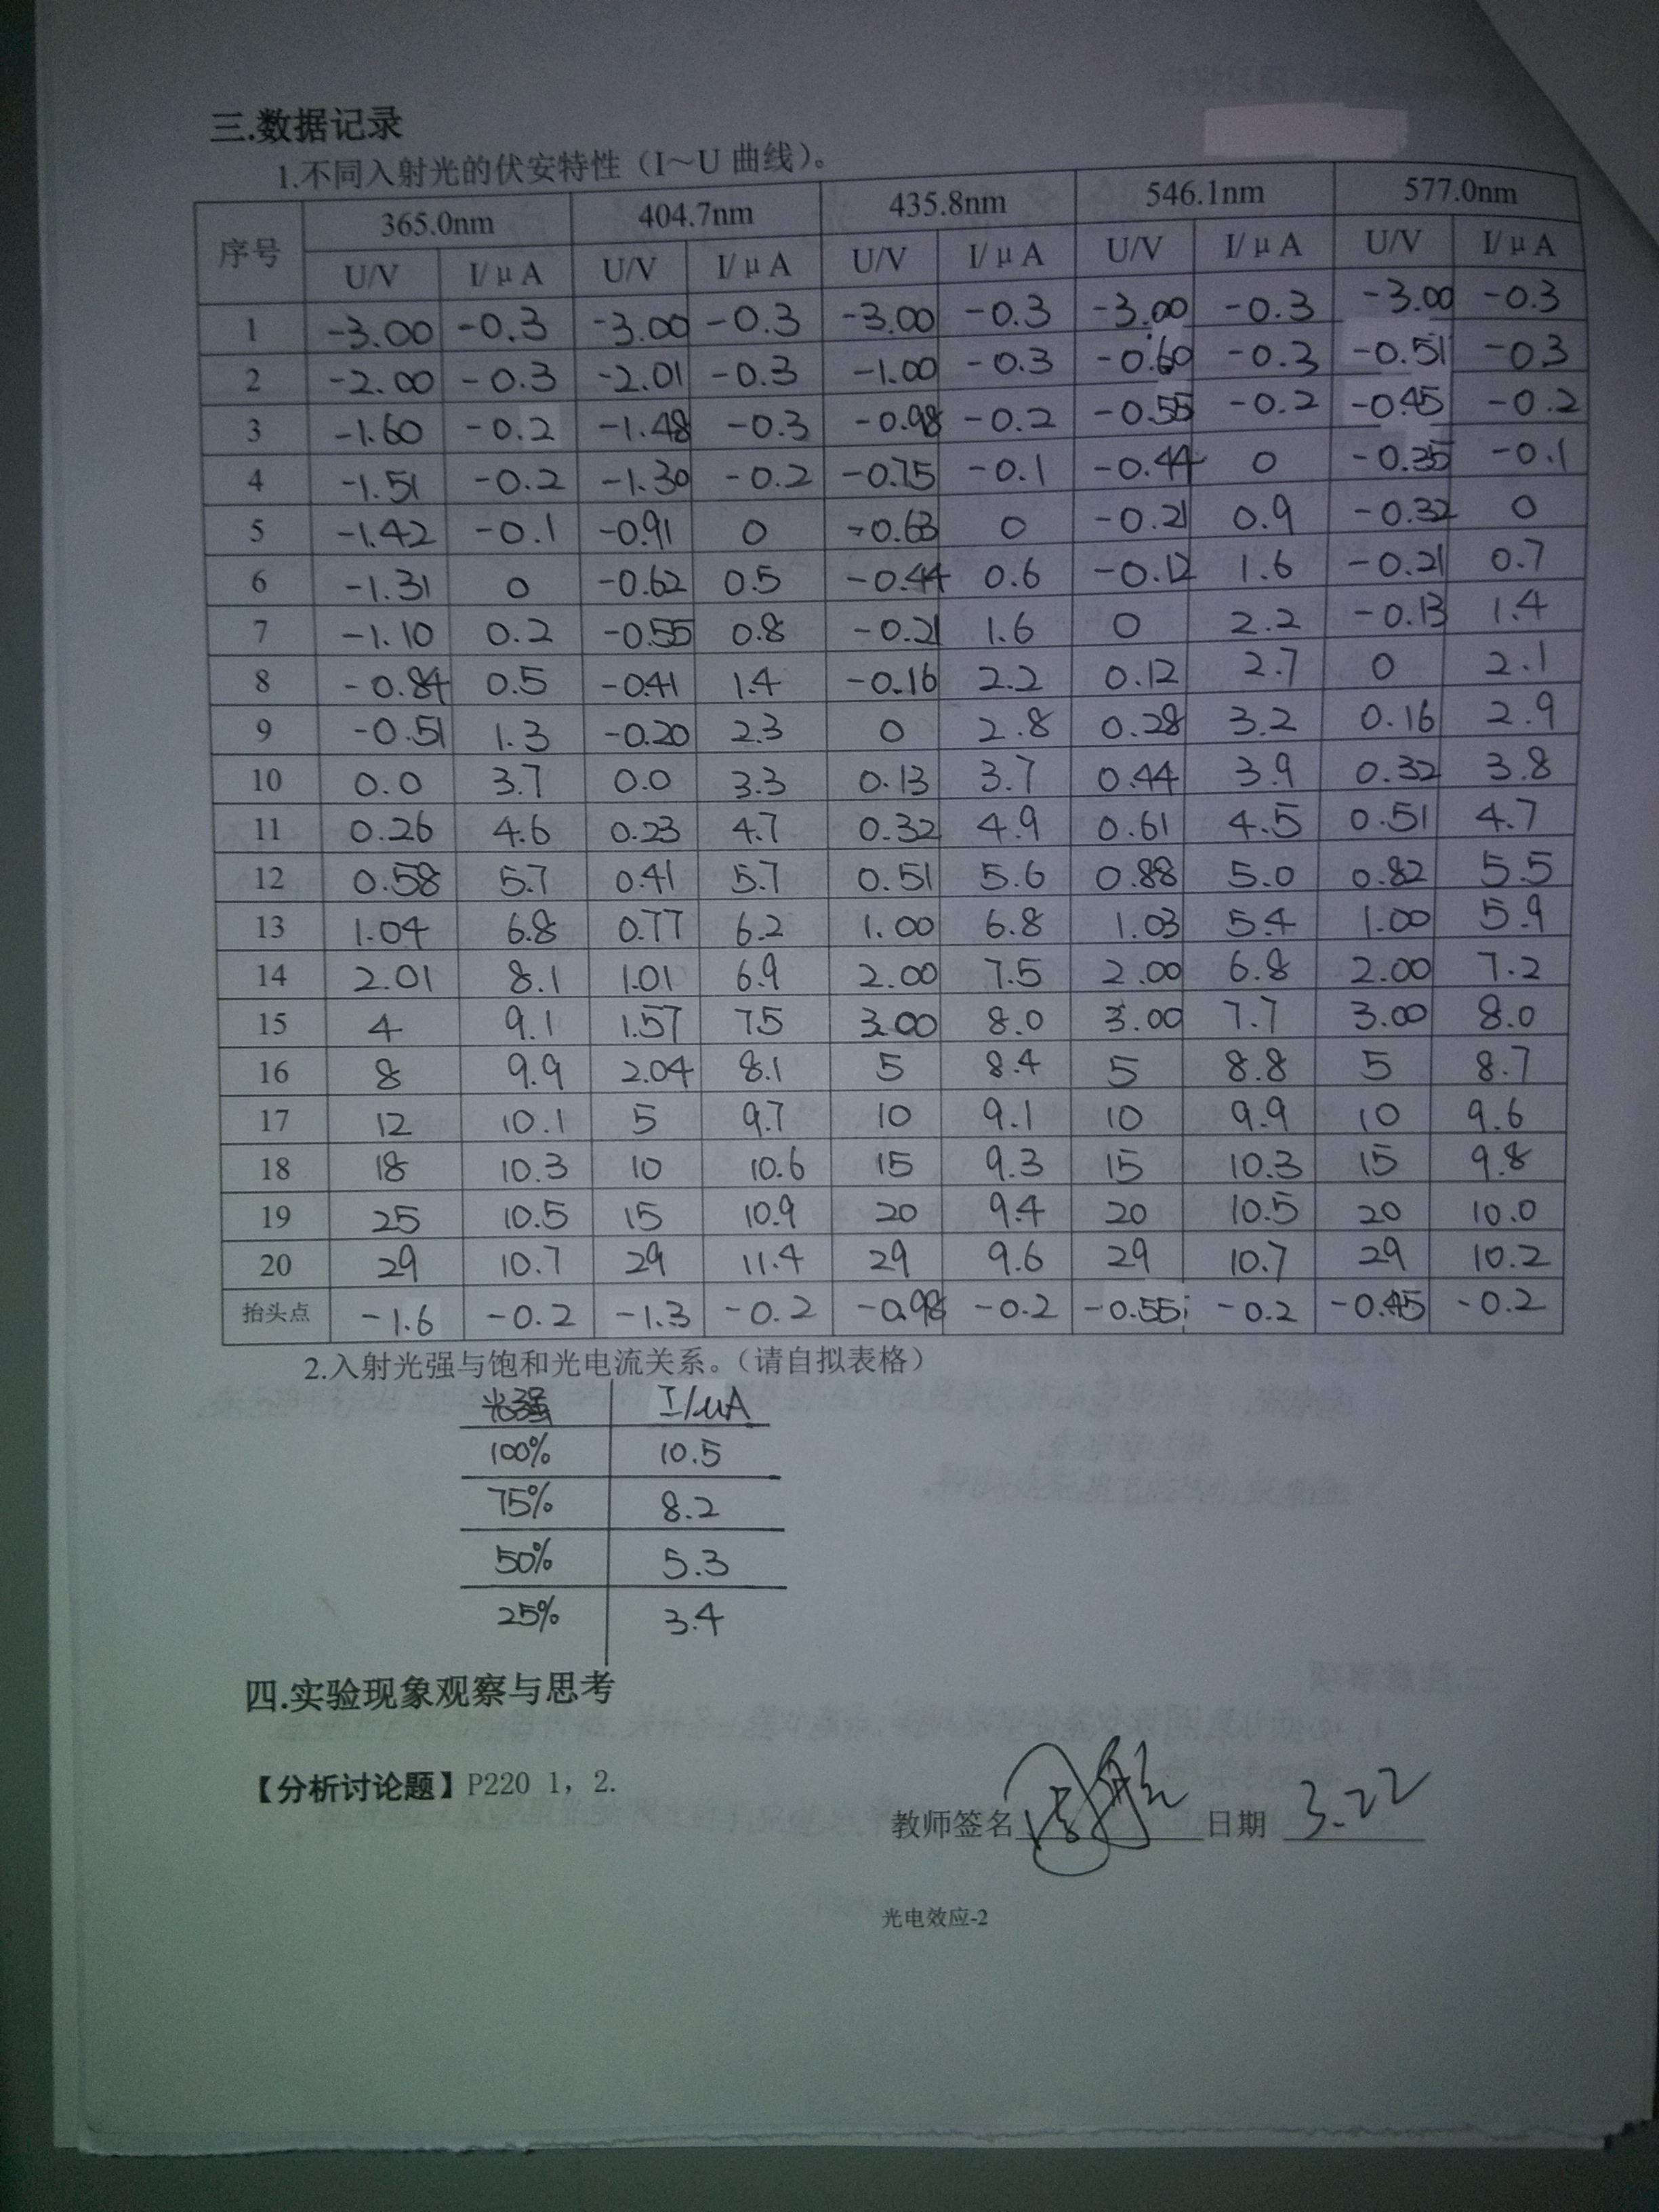 三.数据记录
1.不同入射光的伏安特性（I～U 曲线）。
序号 365.0nm 404.7nm 435.8nm 546.1nm 577.0nm
U/V I/μA U/V I/μA U/V I/μA U/V I/μA U/V I/μA
1 -3.00 -0.3 -3.00 -0.3 -3.00 -0.3 -3.00 -0.3 -3.00 -0.3
2 -2.00 -0.3 -2.01 -0.3 -1.00 -0.3 -0.60 -0.3 -0.51 -0.3
3 -1.60 -0.2 -1.48 -0.3 -0.98 -0.2 -0.55 -0.2 -0.45 -0.2
4 -1.51 -0.2 -1.30 -0.2 -0.75 -0.1 -0.44 0 -0.35 -0.1
5 -1.42 -0.1 -0.91 0 -0.63 0 -0.21 0.9 -0.32 0
6 -1.31 0 -0.62 0.5 -0.44 0.6 -0.12 1.6 -0.21 0.7
7 -1.10 0.2 -0.55 0.8 -0.21 1.6 0 2.2 -0.13 1.4
8 -0.84 0.5 -0.41 1.4 -0.16 2.2 0.12 2.7 0 2.1
9 -0.51 1.3 -0.20 2.3 0 2.8 0.28 3.2 0.16 2.9
10 0.0 3.7 0.0 3.3 0.13 3.7 0.44 3.9 0.32 3.8
11 0.26 4.6 0.23 4.7 0.32 4.9 0.61 4.5 0.51 4.7
12 0.58 5.7 0.41 5.7 0.51 5.6 0.88 5.0 0.82 5.5
13 1.04 6.8 0.77 6.2 1.00 6.8 1.03 5.4 1.00 5.9
14 2.01 8.1 1.01 6.9 2.00 7.5 2.00 6.8 2.00 7.2
15 4 9.1 1.57 7.5 3.00 8.0 3.00 7.7 3.00 8.0
16 8 9.9 2.04 8.1 5 8.4 5 8.8 5 8.7
17 12 10.1 5 9.7 10 9.1 10 9.9 10 9.6
18 18 10.3 10 10.6 15 9.3 15 10.3 15 9.8
19 25 10.5 15 10.9 20 9.4 20 10.5 20 10.0
20 29 10.7 29 11.4 29 9.6 29 10.7 29 10.2
抬头点 -1.6 -0.2 -1.3 -0.2 -0.98 -0.2 -0.55 -0.2 -0.45 -0.2
2.入射光强与饱和光电流关系。（请自拟表格）
光强 I/μA
100% 10.5
75% 8.2
50% 5.3
25% 3.4
四.实验现象观察与思考
【分析讨论题】P220 1，2.
教师签名 日期 3.22
光电效应-2